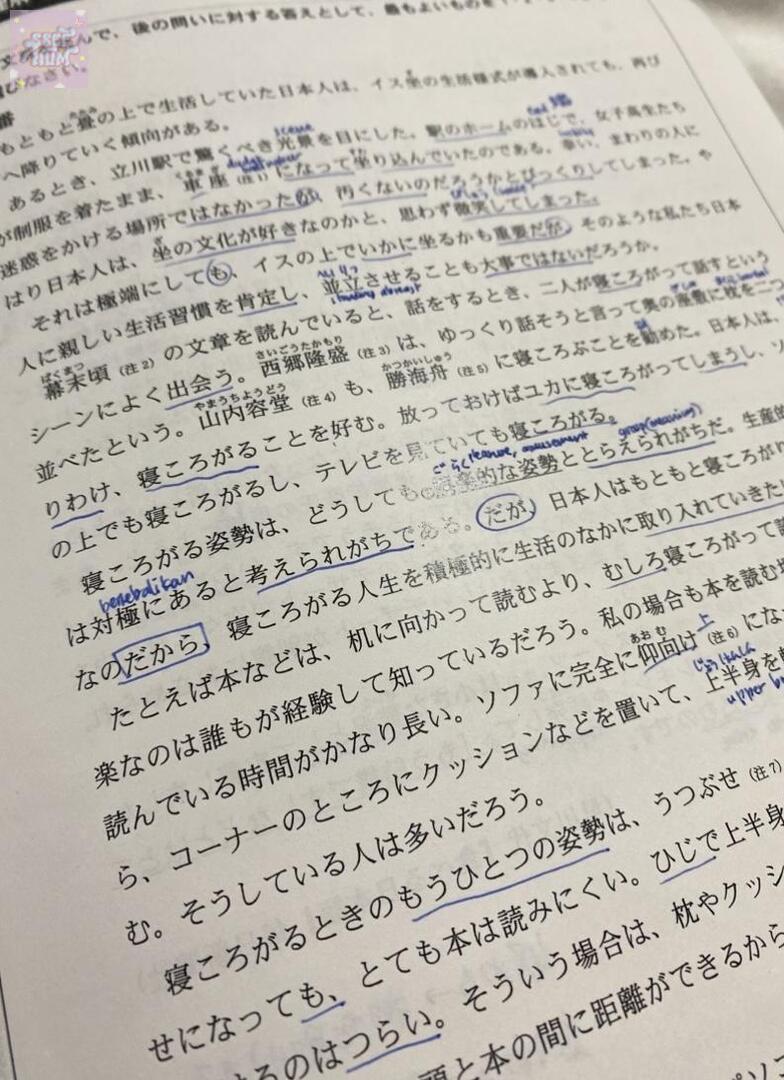 んで、後の問いに対する答えとして、最もよいものを
びなさい。
番
もともと畳の上で生活していた日本人は、イス坐の生活様式が導入されても、再び
へ降りていく傾向がある。
あるとき、立川駅で驚くべき光景を目にした。駅のホームのはじで、女子高生たち
が制服を着たまま、車座(注1)になって坐り込んでいたのである。幸い、まわりの人に
迷惑をかける場所ではなかったが、汚くないのだろうかとびっくりしてしまった。や
はり日本人は、坐の文化が好きなのかと、思わず微笑してしまった。
それは極端にしても、イスの上でいかに坐るかも重要だが、そのような私たち日本
人に親しい生活習慣を肯定し、並立させることも大事ではないだろうか。
幕末頃(注2)の文章を読んでいると、話をするとき、二人が寝ころがって話すという
シーンによく出会う。西郷隆盛(注3)は、ゆっくり話そうと言って奥の座敷に枕を二つ
並べたという。山内容堂(注4)も、勝海舟(注5)に寝ころぶことを勧めた。日本人は、
りわけ、寝ころがることを好む。放っておけばユカに寝ころがってしまうし、ソ
の上でも寝ころがるし、テレビを見ていても寝ころがる。
寝ころがる姿勢は、どうしても娯楽的な姿勢ととらえられがちだ。生産的
は対極にあると考えられがちである。だが、日本人はもともと寝ころがり
なのだから、寝ころがる人生を積極的に生活のなかに取り入れていきたい
たとえば本などは、机に向かって読むより、むしろ寝ころがって読
楽なのは誰もが経験して知っているだろう。私の場合も本を読む
読んでいる時間がかなり長い。ソファに完全に仰向け(注6)にな
ら、コーナーのところにクッションなどを置いて、上半身を
む。そうしている人は多いだろう。
寝ころがるときのもうひとつの姿勢は、うつぶせ(注7)
せになっても、とても本は読みにくい。ひじで上半身
するのはつらい。そういう場合は、枕やクッシ
頭と本の間に距離ができるから
scene
end
standing abreast
leisure, amusement
berkebalikan
上
じょうはんしん